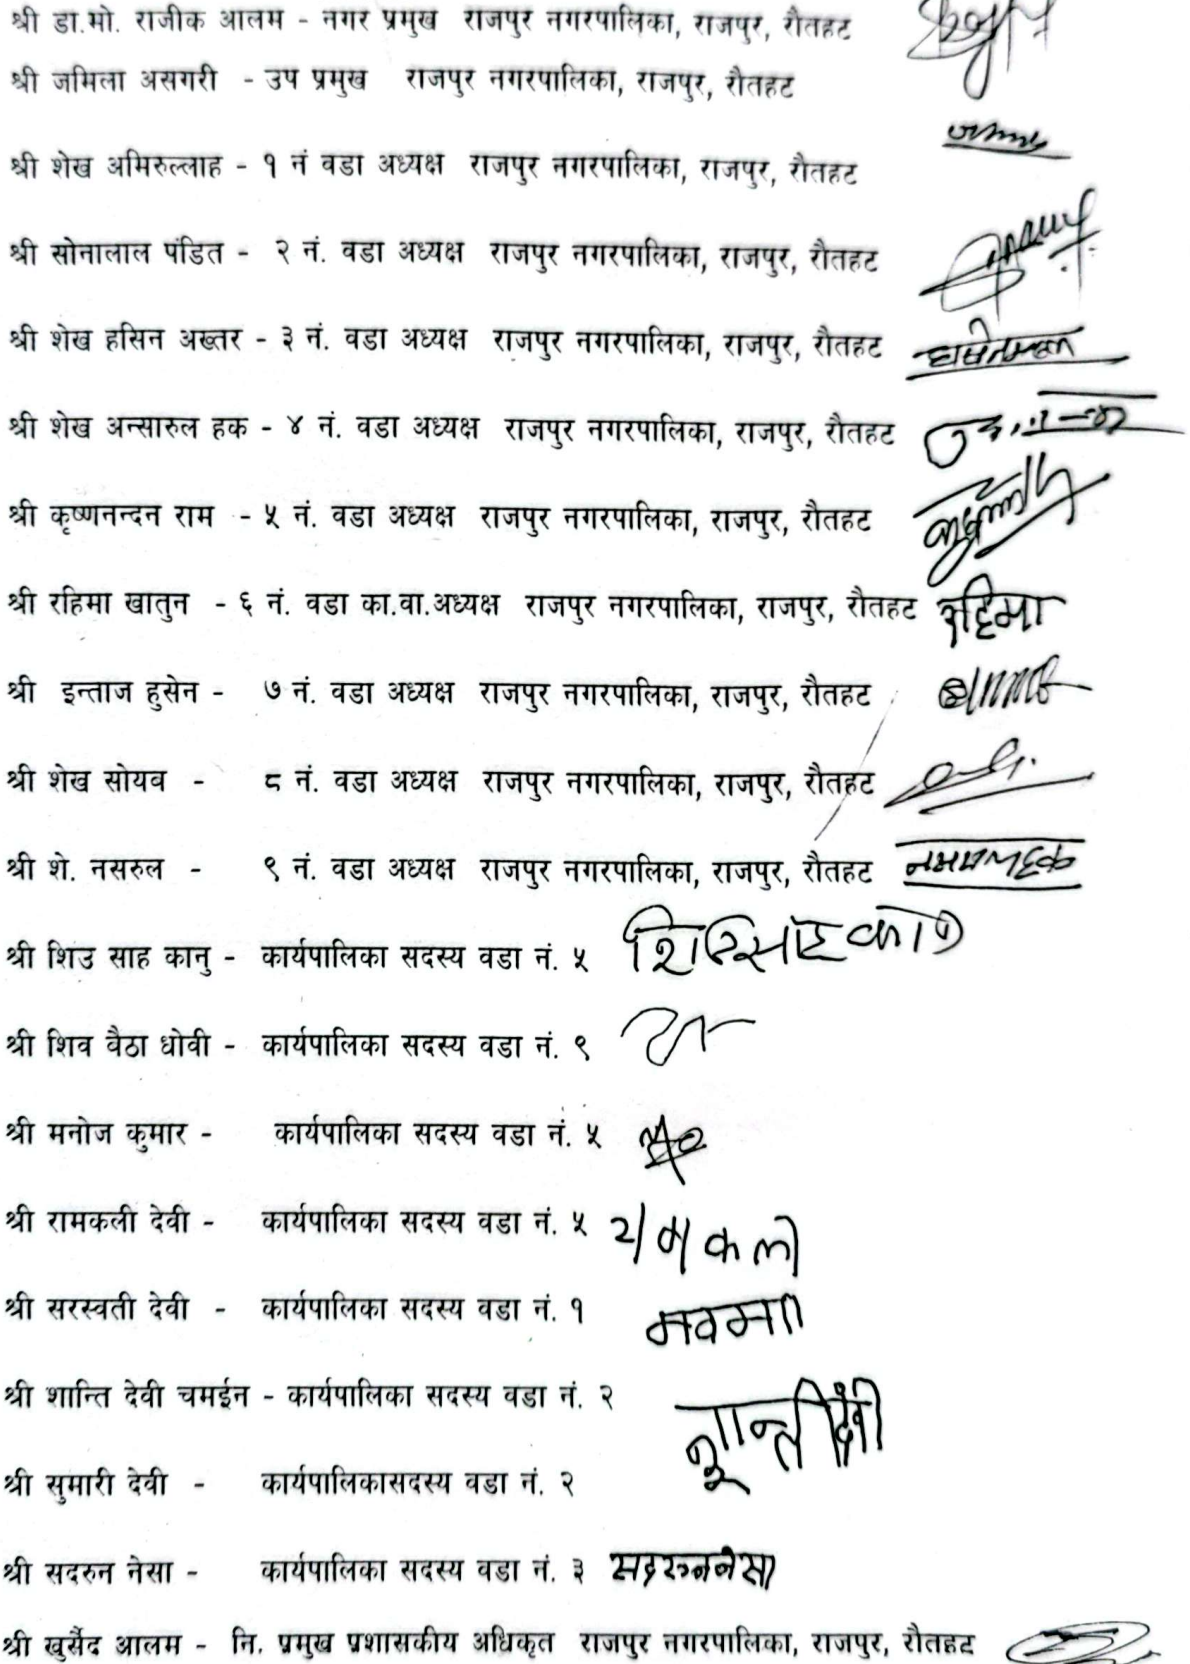 श्री डा.मो. राजीक आलम - नगर प्रमुख राजपुर नगरपालिका, राजपुर, रौतहट
श्री जमिला असगरी - उप प्रमुख राजपुर नगरपालिका, राजपुर, रौतहट
श्री शेख अमिरुल्लाह - १ नं वडा अध्यक्ष राजपुर नगरपालिका, राजपुर, रौतहट
श्री सोनालाल पंडित - २ नं. वडा अध्यक्ष राजपुर नगरपालिका, राजपुर, रौतहट
श्री शेख हसिन अख्तर - ३ नं. वडा अध्यक्ष राजपुर नगरपालिका, राजपुर, रौतहट
श्री शेख अन्सारुल हक - ४ नं. वडा अध्यक्ष राजपुर नगरपालिका, राजपुर, रौतहट
श्री कृष्णनन्दन राम - ५ नं. वडा अध्यक्ष राजपुर नगरपालिका, राजपुर, रौतहट
श्री रहिमा खातुन - ६ नं. वडा का.वा.अध्यक्ष राजपुर नगरपालिका, राजपुर, रौतहट रहिमा
श्री इन्ताज हुसेन - ७ नं. वडा अध्यक्ष राजपुर नगरपालिका, राजपुर, रौतहट
श्री शेख सोयव - ८ नं. वडा अध्यक्ष राजपुर नगरपालिका, राजपुर, रौतहट
श्री शे. नसरुल - ९ नं. वडा अध्यक्ष राजपुर नगरपालिका, राजपुर, रौतहट
श्री शिउ साह कानु - कार्यपालिका सदस्य वडा नं. ५
श्री शिव वैठा धोवी - कार्यपालिका सदस्य वडा नं. ९
श्री मनोज कुमार - कार्यपालिका सदस्य वडा नं. ५
श्री रामकली देवी - कार्यपालिका सदस्य वडा नं. ५
श्री सरस्वती देवी - कार्यपालिका सदस्य वडा नं. १
श्री शान्ति देवी चमईन - कार्यपालिका सदस्य वडा नं. २
श्री सुमारी देवी - कार्यपालिकासदस्य वडा नं. २
श्री सदरुन नेसा - कार्यपालिका सदस्य वडा नं. ३ सदरुननेसा
श्री खुर्सैद आलम - नि. प्रमुख प्रशासकीय अधिकृत राजपुर नगरपालिका, राजपुर, रौतहट